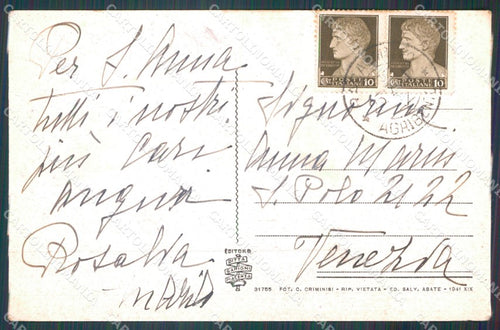 Per S. Anna
tutti i nostri
più cari
auguri
Rosalba
Maria
10
10
POSTE ITALIANE
POSTE ITALIANE
Signorina
Anna Maria
S. Polo 2122
Venezia
EDITORE
31755 FOT. C. CRIMINISI - RIP. VIETATA - ED. SALV. ABATE - 1941 XIX